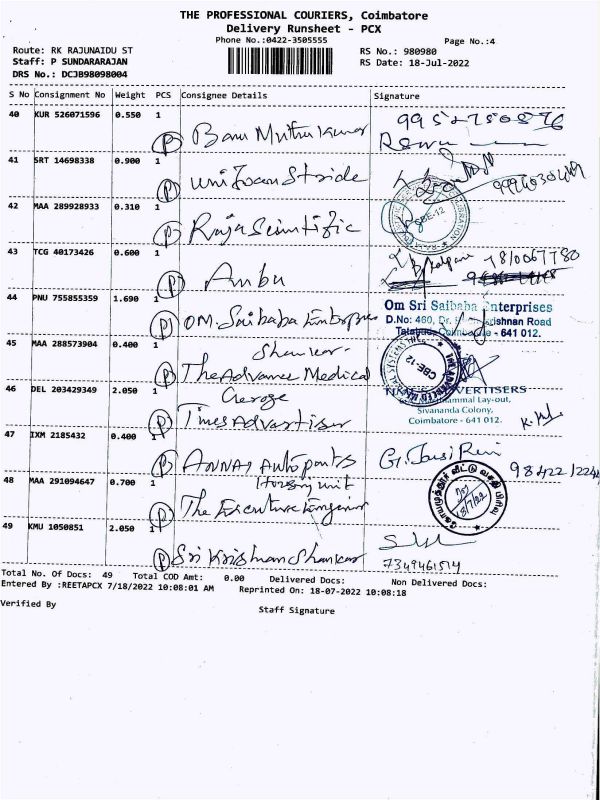 THE PROFESSIONAL COURIERS, Coimbatore
Delivery Runsheet - PCX
Phone No.:0422-3505555
Page No.:4
Route: RK RAJUNAIDU ST
RS No.: 980980
Staff: P SUNDARARAJAN
RS Date: 18-Jul-2022
DRS No.: DCJB98098004
S No Consignment No Weight PCS Consignee Details Signature
40 KUR 526071596 0.550 1
P Banu Muthukumar
41 SRT 14698338 0.900 1
P Uniform Stride
42 MAA 289928933 0.310 1
CBE-12
P Raja Scientific
43 TCG 40173426 0.600 1
P Ambu
44 PNU 755855359 1.690 1
Om Sri Saibaba Enterprises
D.No: 460, Dr. Road
- 641 012.
P OM. Saibaba Enterprises
Shankar.
45 MAA 288573904 0.400 1
CBE-12
P The Advance Medical
George
46 DEL 203429349 2.050 1
Lay-out,
Sivananda Colony,
Coimbatore - 641 012.
P Times Advertiser
47 IXM 2185432 0.400 1
P ANNAI Autoparts
Housing unit
48 MAA 291094647 0.700 1
P The Executive Engineer
49 KMU 1050851 2.050 1
P Sri Krishnan Shankar
7349461514
Total No. Of Docs: 49 Total COD Amt: 0.00 Delivered Docs: Non Delivered Docs:
Entered By :REETAPCX 7/18/2022 10:08:01 AM Reprinted On: 18-07-2022 10:08:18
Verified By
Staff Signature